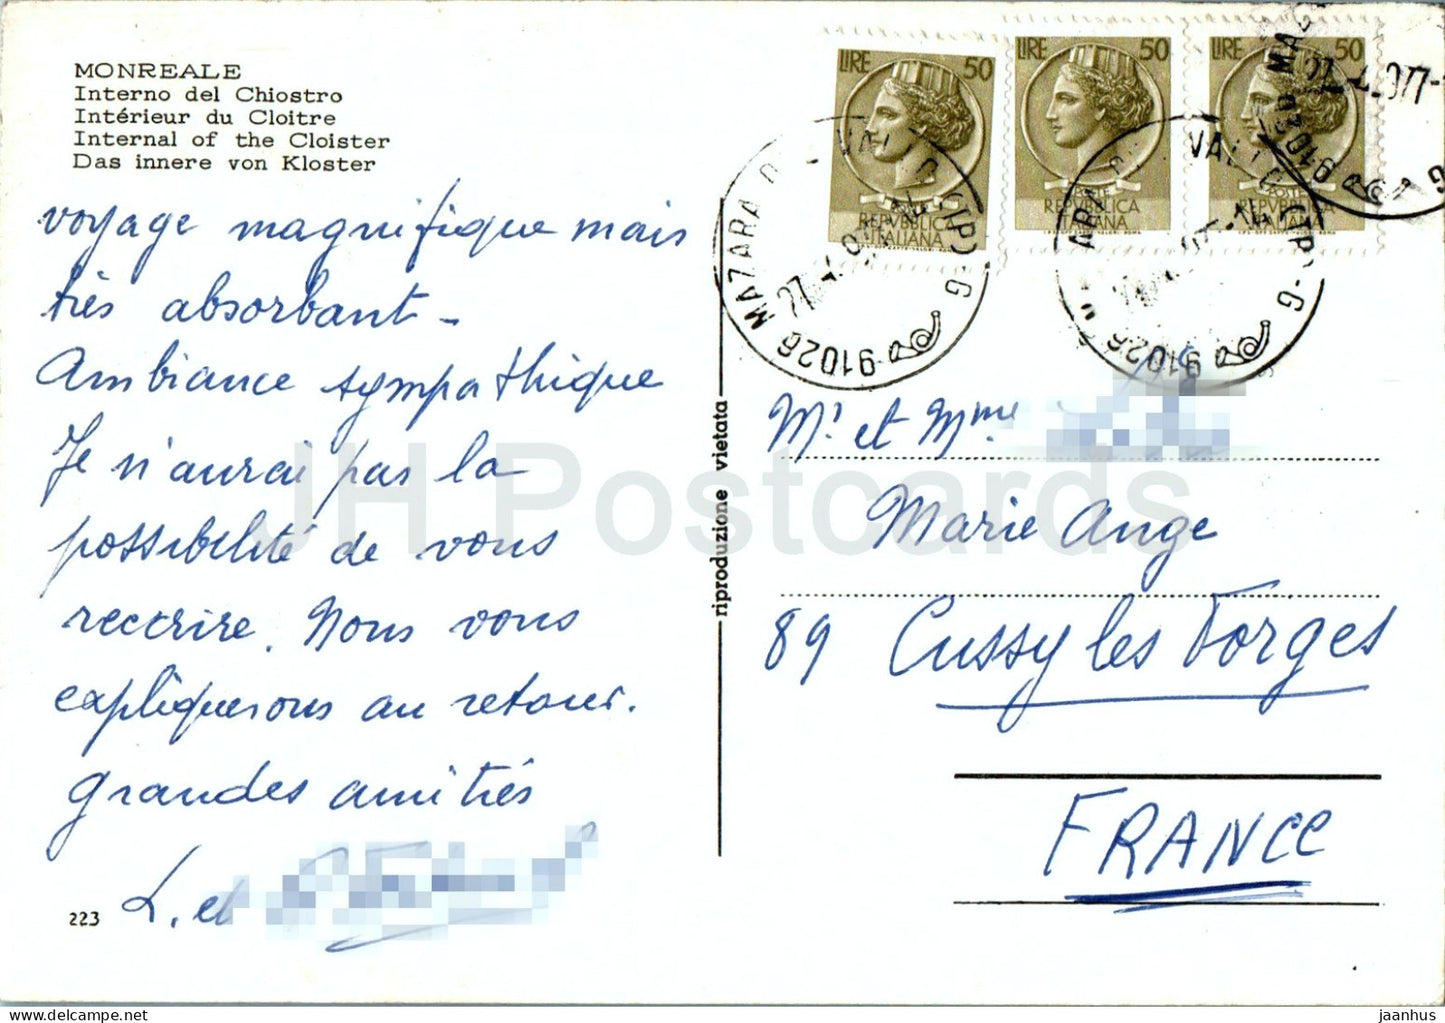 MONREALE
Interno del Chiostro
Intérieur du Cloitre
Internal of the Cloister
Das innere von Kloster
voyage magnifique mais
très absorbant -
Ambiance sympathique
Je n'aurai pas la
possibilité de vous
reccrire. Nous vous
expliquerons au retour.
grandes amitiés
L. et
223
riproduzione vietata
LIRE 50
POSTE
REPVBBLICA
ITALIANA
LIRE 50
POSTE
REPVBBLICA
ITALIANA
LIRE 50
POSTE
REPVBBLICA
ITALIANA
91026 MAZARA D VALLO (TP) - G
91026 MAZARA DEL VALLO (TP) - G
Mr et Mme
Marie Ange
89 Cussy les Forges
FRANCE
JH Postcards
jaanhus